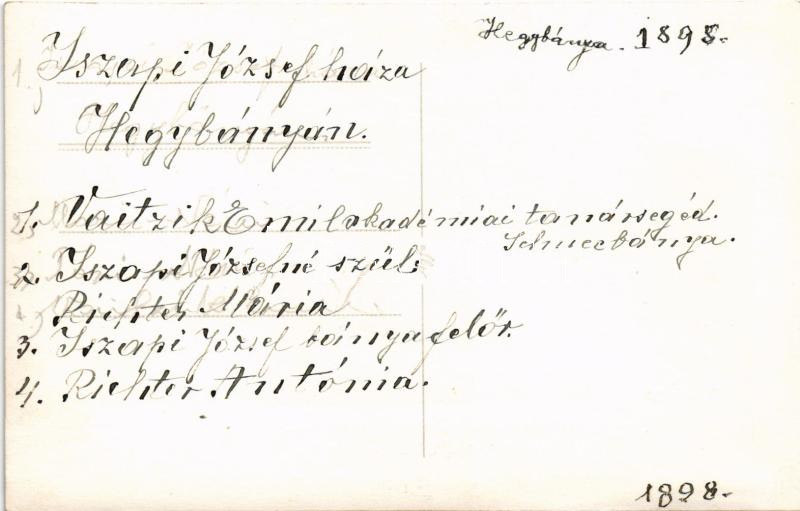 Hegybánya. 1898.
Iszapi József háza
Hegybányán.
1. Vaitzik Emil akadémiai tanársegéd.
Selmecbánya.
2. Iszapi Józsefné szül:
Richter Mária
3. Iszapi József bányafelőr.
4. Richter Antónia.
1898.